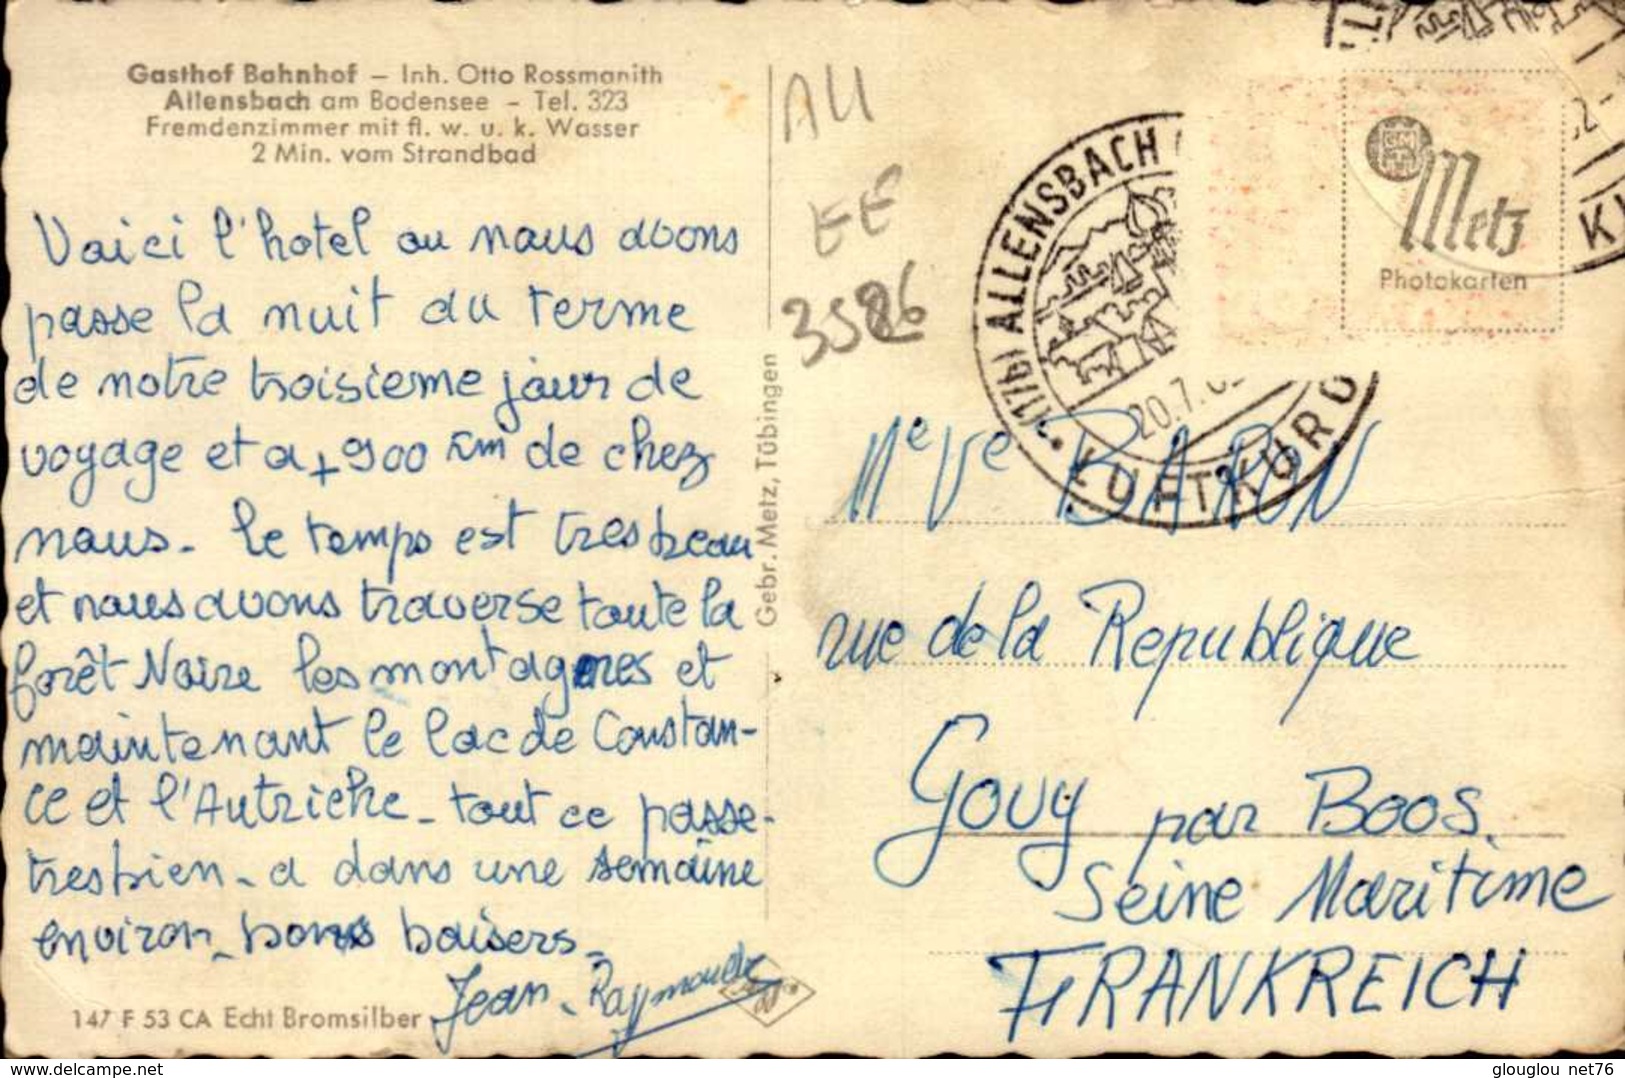 Gasthof Bahnhof – Inh. Otto Rossmanith
Allensbach am Bodensee – Tel. 323
Fremdenzimmer mit fl. w. u. k. Wasser
2 Min. vom Strandbad
Voici l'hotel ou nous avons
passe la nuit au terme
de notre troisieme jour de
voyage et a + 900 Km de chez
nous - le temps est tres beau
et nous avons traverse toute la
forêt Noire les montagnes et
maintenant le lac de Constan-
ce et l'Autriche - tout ce passe
tres bien - a dans une semaine
environ - bons baisers -
Jean - Raymonde
147 F 53 CA Echt Bromsilber
Gebr. Metz, Tübingen
All
EE
3586
(17b) ALLENSBACH
20.7.6
LUFTKURO
Metz
Photokarten
Me Ve BARON
rue de la Republique
Gouy par Boos.
Seine Maritime
FRANKREICH
www.delcampe.net
glouglou_net76